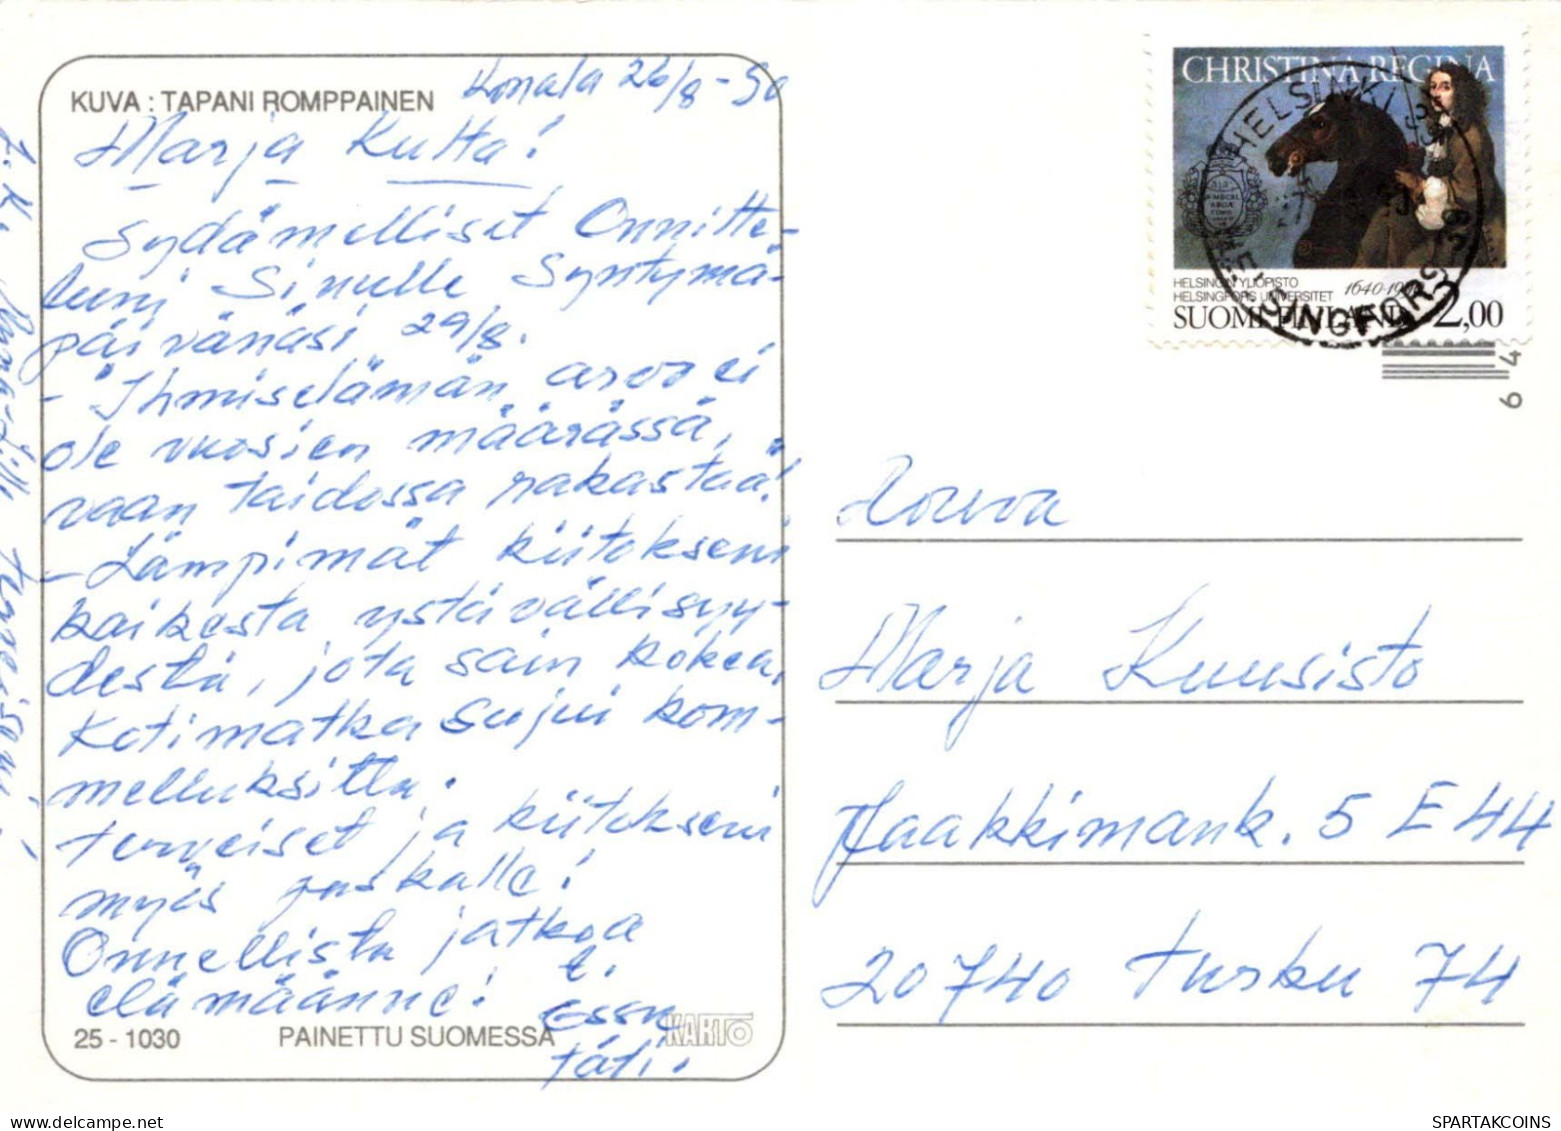 KUVA : TAPANI ROMPPAINEN
Konala 26/8-90
Marja Kulta!
Sydämelliset Onnitte-
luni Sinulle Syntymä-
päivänäsi 29/8.
- "Ihmiselämän arvo ei
ole vuosien määrässä,
vaan taidossa rakastaa!"
- Lämpimät kiitokseni
kaikesta ystävällisyy-
destä, jota sain kokea,
Kotimatka sujui kom-
melluksitta.
terveiset ja kiitokseni
myös
Onnellista jatkoa
elämäänne!
t.
Essu
täti.
25 - 1030
PAINETTU SUOMESSA
KARTO
CHRISTINA REGINA
HELSINGIN YLIOPISTO
HELSINGFORS UNIVERSITET
1640-1990
SUOMI FINLAND 2,00
HELSINKI
HELSINGFORS
64
Rouva
Marja Kuusisto
Jaakkimank. 5 E 44
20740 Turku 74
SPARTAKCOINS